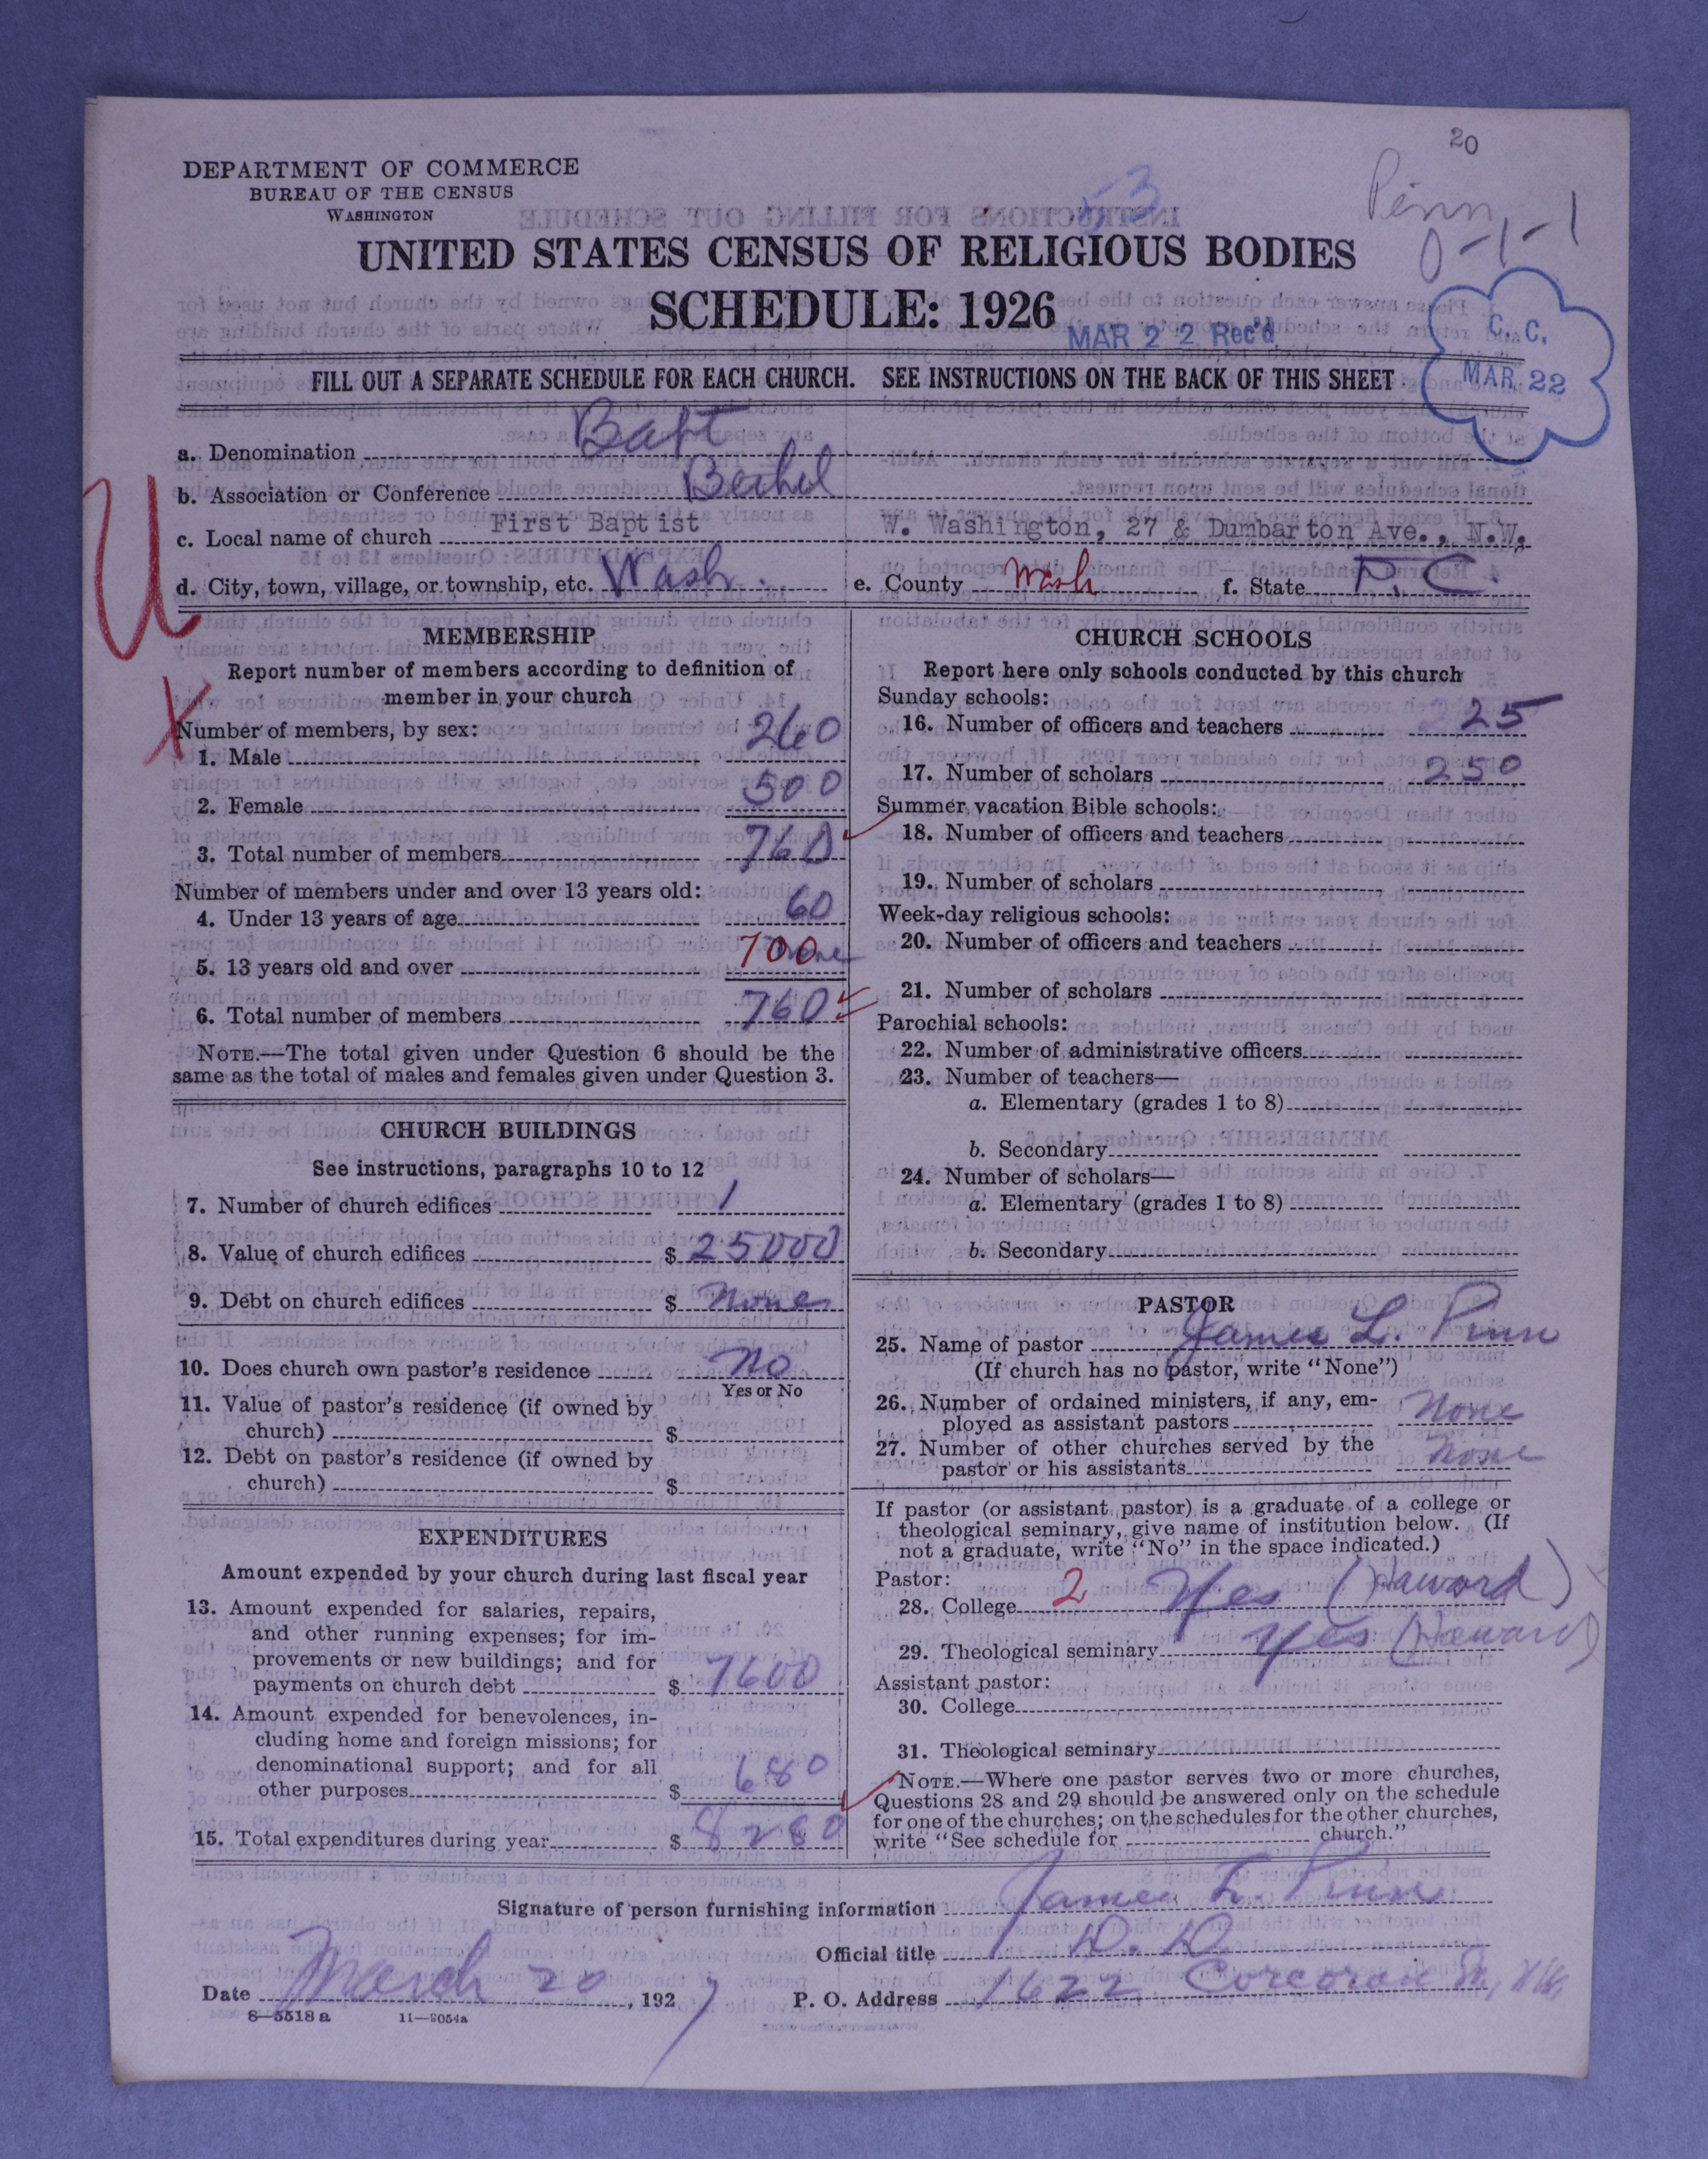 20
Pinn
0-1-1
53
DEPARTMENT OF COMMERCE
BUREAU OF THE CENSUS
WASHINGTON
UNITED STATES CENSUS OF RELIGIOUS BODIES
SCHEDULE: 1926
MAR 22 Rec'd
C. C.
MAR 22
FILL OUT A SEPARATE SCHEDULE FOR EACH CHURCH. SEE INSTRUCTIONS ON THE BACK OF THIS SHEET
U
a. Denomination Bapt
b. Association or Conference Bethel
c. Local name of church First Baptist W. Washington, 27 & Dumbarton Ave., N.W.
d. City, town, village, or township, etc. Wash. e. County Wash f. State D.C.
MEMBERSHIP
Report number of members according to definition of
member in your church
X
Number of members, by sex:
1. Male 260
2. Female 500
3. Total number of members 760
Number of members under and over 13 years old:
4. Under 13 years of age 60
5. 13 years old and over 700 none
6. Total number of members 760
NOTE.—The total given under Question 6 should be the
same as the total of males and females given under Question 3.
CHURCH BUILDINGS
See instructions, paragraphs 10 to 12
7. Number of church edifices 1
8. Value of church edifices $ 25000
9. Debt on church edifices $ none
10. Does church own pastor's residence No
Yes or No
11. Value of pastor's residence (if owned by
church) $
12. Debt on pastor's residence (if owned by
church) $
EXPENDITURES
Amount expended by your church during last fiscal year
13. Amount expended for salaries, repairs,
and other running expenses; for im-
provements or new buildings; and for
payments on church debt $ 7600
14. Amount expended for benevolences, in-
cluding home and foreign missions; for
denominational support; and for all
other purposes $ 680
15. Total expenditures during year $ 8280
CHURCH SCHOOLS
Report here only schools conducted by this church
Sunday schools:
16. Number of officers and teachers 25
17. Number of scholars 250
Summer vacation Bible schools:
18. Number of officers and teachers
19. Number of scholars
Week-day religious schools:
20. Number of officers and teachers
21. Number of scholars
Parochial schools:
22. Number of administrative officers
23. Number of teachers—
a. Elementary (grades 1 to 8)
b. Secondary
24. Number of scholars—
a. Elementary (grades 1 to 8)
b. Secondary
PASTOR
25. Name of pastor James L. Pinn
(If church has no pastor, write "None")
26. Number of ordained ministers, if any, em-
ployed as assistant pastors None
27. Number of other churches served by the
pastor or his assistants None
If pastor (or assistant pastor) is a graduate of a college or
theological seminary, give name of institution below. (If
not a graduate, write "No" in the space indicated.)
Pastor:
28. College 2 Yes (Howard)
29. Theological seminary Yes (Howard)
Assistant pastor:
30. College
31. Theological seminary
NOTE.—Where one pastor serves two or more churches,
Questions 28 and 29 should be answered only on the schedule
for one of the churches; on the schedules for the other churches,
write "See schedule for church."
Signature of person furnishing information James L. Pinn
Official title D. D
Date March 20, 1927 P. O. Address 1622 Corcoran St, NW,
8—5518 a 11—9054a